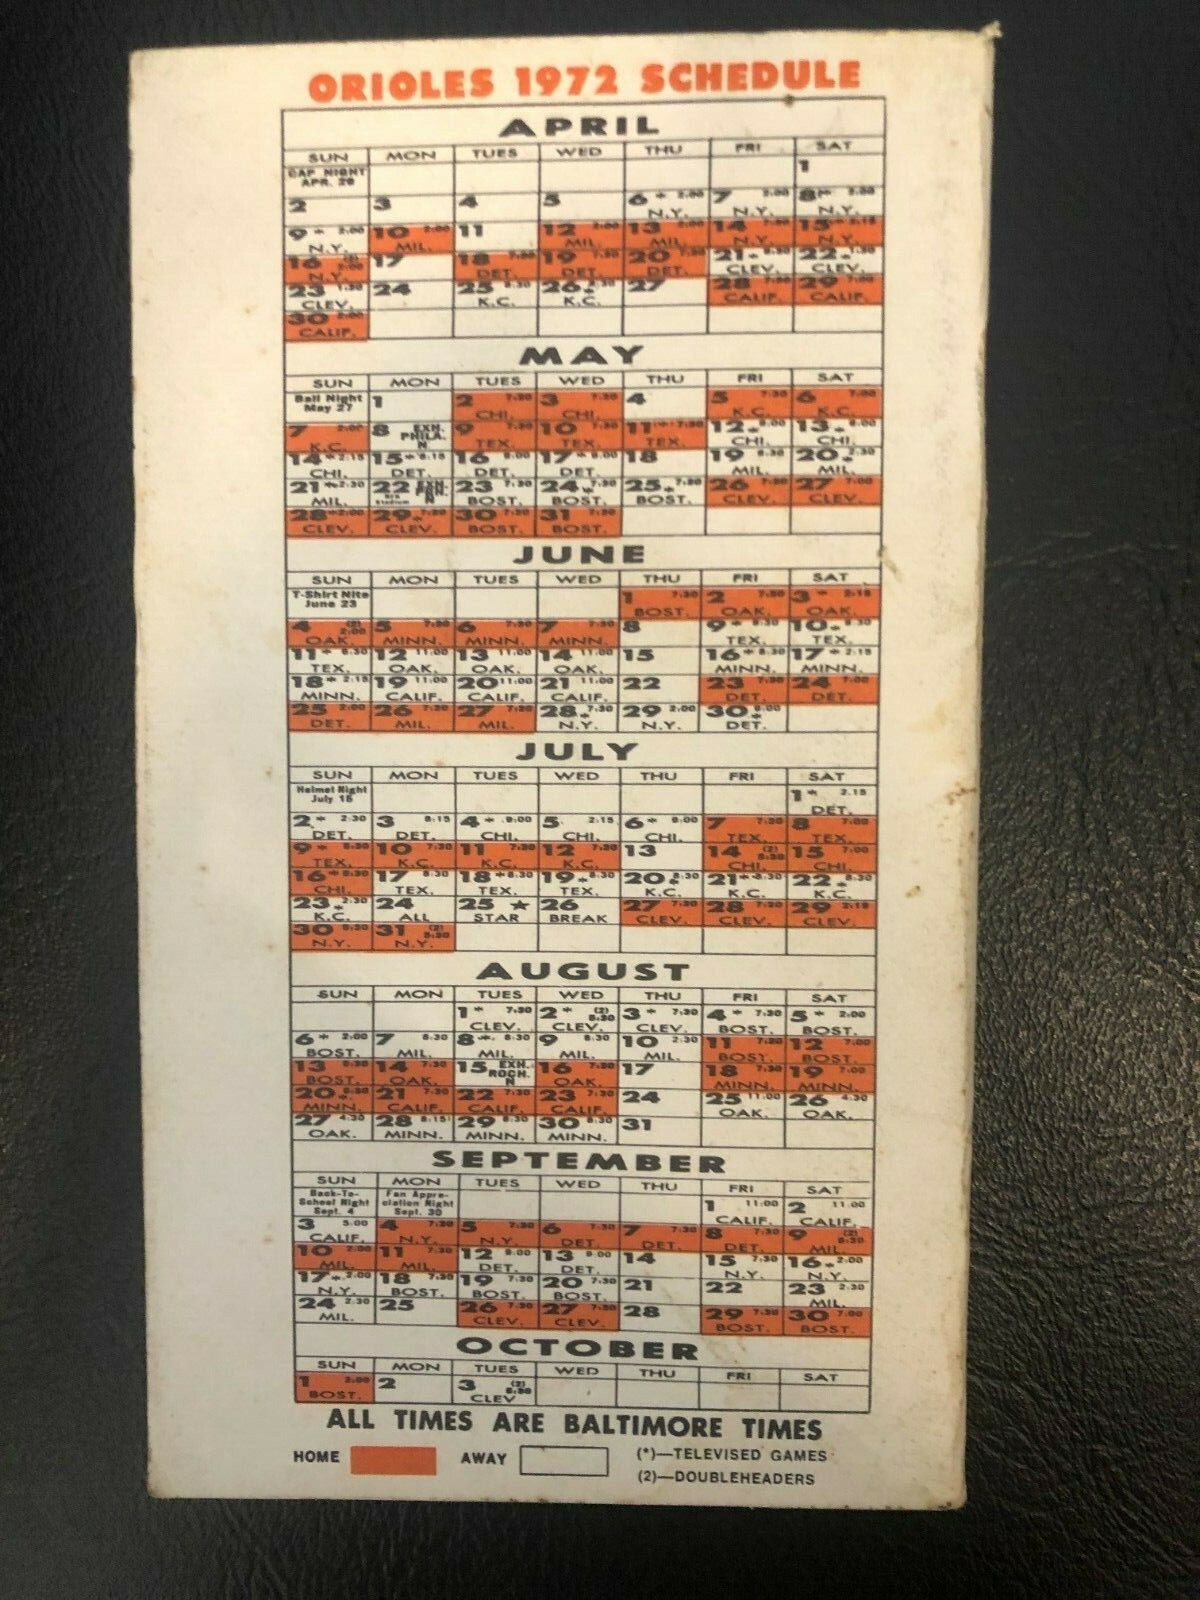 ORIOLES 1972 SCHEDULE
APRIL
SUN MON TUES WED THU FRI SAT
CAP NIGHT APR. 1
2 3 4 5 6 * 2:00 N.Y. 7 2:00 N.Y. 8 2:00 N.Y.
9 * 2:00 N.Y. 10 2:00 MIL. 11 12 MIL. 13 MIL. 14 N.Y. 15 2:15 N.Y.
16 (2) 2:00 N.Y. 17 18 7:30 DET. 19 7:30 DET. 20 7:30 DET. 21 CLEV. 22 CLEV.
23 1:30 CLEV. 24 25 8:30 K.C. 26 8:30 K.C. 27 28 7:30 CALIF. 29 7:00 CALIF.
30 2:00 CALIF.
MAY
SUN MON TUES WED THU FRI SAT
Ball Night May 27 1 2 7:30 CHI. 3 7:30 CHI. 4 5 7:30 K.C. 6 7:00 K.C.
7 2:00 K.C. 8 EXH. PHILA. N 9 7:30 TEX. 10 7:30 TEX. 11 7:30 TEX. 12 * 9:00 CHI. 13 * CHI.
14 * 2:15 CHI. 15 * 8:15 DET. 16 8:00 DET. 17 * 8:00 DET. 18 19 8:30 MIL. 20 * 2:30 MIL.
21 * 2:30 MIL. 22 EXH. N 23 7:30 BOST. 24 * 7:30 BOST. 25 * 7:30 BOST. 26 7:30 CLEV. 27 7:00 CLEV.
28 * 2:00 CLEV. 29 * 7:30 CLEV. 30 7:30 BOST. 31 7:30 BOST.
JUNE
SUN MON TUES WED THU FRI SAT
T-Shirt Nite June 23 1 7:30 BOST. 2 7:30 OAK. 3 * 2:15 OAK.
4 (2) 2:00 OAK. 5 7:30 MINN. 6 7:30 MINN. 7 7:30 MINN. 8 9 * 8:30 TEX. 10 * 8:30 TEX.
11 * 8:30 TEX. 12 11:00 OAK. 13 11:00 OAK. 14 11:00 OAK. 15 16 * 8:30 MINN. 17 * 2:15 MINN.
18 * 2:15 MINN. 19 11:00 CALIF. 20 11:00 CALIF. 21 11:00 CALIF. 22 23 7:30 DET. 24 7:00 DET.
25 2:00 DET. 26 7:30 MIL. 27 7:30 MIL. 28 * 7:30 N.Y. 29 2:00 N.Y. 30 * DET.
JULY
SUN MON TUES WED THU FRI SAT
Helmet Night July 15 1 * 2:15 DET.
2 * 2:30 DET. 3 8:15 DET. 4 * 9:00 CHI. 5 2:15 CHI. 6 * 9:00 CHI. 7 7:30 TEX. 8 7:00 TEX.
9 * TEX. 10 7:30 K.C. 11 7:30 K.C. 12 7:30 K.C. 13 14 (2) 5:30 CHI. 15 7:00 CHI.
16 * CHI. 17 8:30 TEX. 18 * 8:30 TEX. 19 * 8:30 TEX. 20 * 8:30 K.C. 21 * 8:30 K.C. 22 * 8:30 K.C.
23 * 2:30 K.C. 24 ALL 25 ★ STAR 26 BREAK 27 7:30 CLEV. 28 7:30 CLEV. 29 2:15 CLEV.
30 N.Y. 31 (2) 5:30 N.Y.
AUGUST
SUN MON TUES WED THU FRI SAT
1 * 7:30 CLEV. 2 * (2) 5:30 CLEV. 3 * 7:30 CLEV. 4 * 7:30 BOST. 5 * 2:00 BOST.
6 * 2:00 BOST. 7 8:30 MIL. 8 * 8:30 MIL. 9 8:30 MIL. 10 2:30 MIL. 11 7:30 BOST. 12 7:00 BOST.
13 BOST. 14 7:30 OAK. 15 EXH. ROCH. N 16 7:30 OAK. 17 18 7:30 MINN. 19 7:00 MINN.
20 MINN. 21 7:30 CALIF. 22 7:30 CALIF. 23 7:30 CALIF. 24 25 11:00 OAK. 26 4:30 OAK.
27 4:30 OAK. 28 8:15 MINN. 29 8:30 MINN. 30 8:30 MINN. 31
SEPTEMBER
SUN MON TUES WED THU FRI SAT
Back-To-School Night Sept. 4 Fan Appreciation Night Sept. 30 1 11:00 CALIF. 2 11:00 CALIF.
3 5:00 CALIF. 4 7:30 N.Y. 5 7:30 N.Y. 6 7:30 DET. 7 7:30 DET. 8 7:30 DET. 9 (2) 5:30 MIL.
10 2:00 MIL. 11 7:30 MIL. 12 8:00 DET. 13 8:00 DET. 14 15 7:30 N.Y. 16 * 2:00 N.Y.
17 * 2:00 N.Y. 18 7:30 BOST. 19 7:30 BOST. 20 7:30 BOST. 21 22 23 2:30 MIL.
24 2:30 MIL. 25 26 7:30 CLEV. 27 7:30 CLEV. 28 29 7:30 BOST. 30 7:00 BOST.
OCTOBER
SUN MON TUES WED THU FRI SAT
1 2:00 BOST. 2 3 (2) 5:30 CLEV
ALL TIMES ARE BALTIMORE TIMES
HOME AWAY (*)—TELEVISED GAMES
(2)—DOUBLEHEADERS